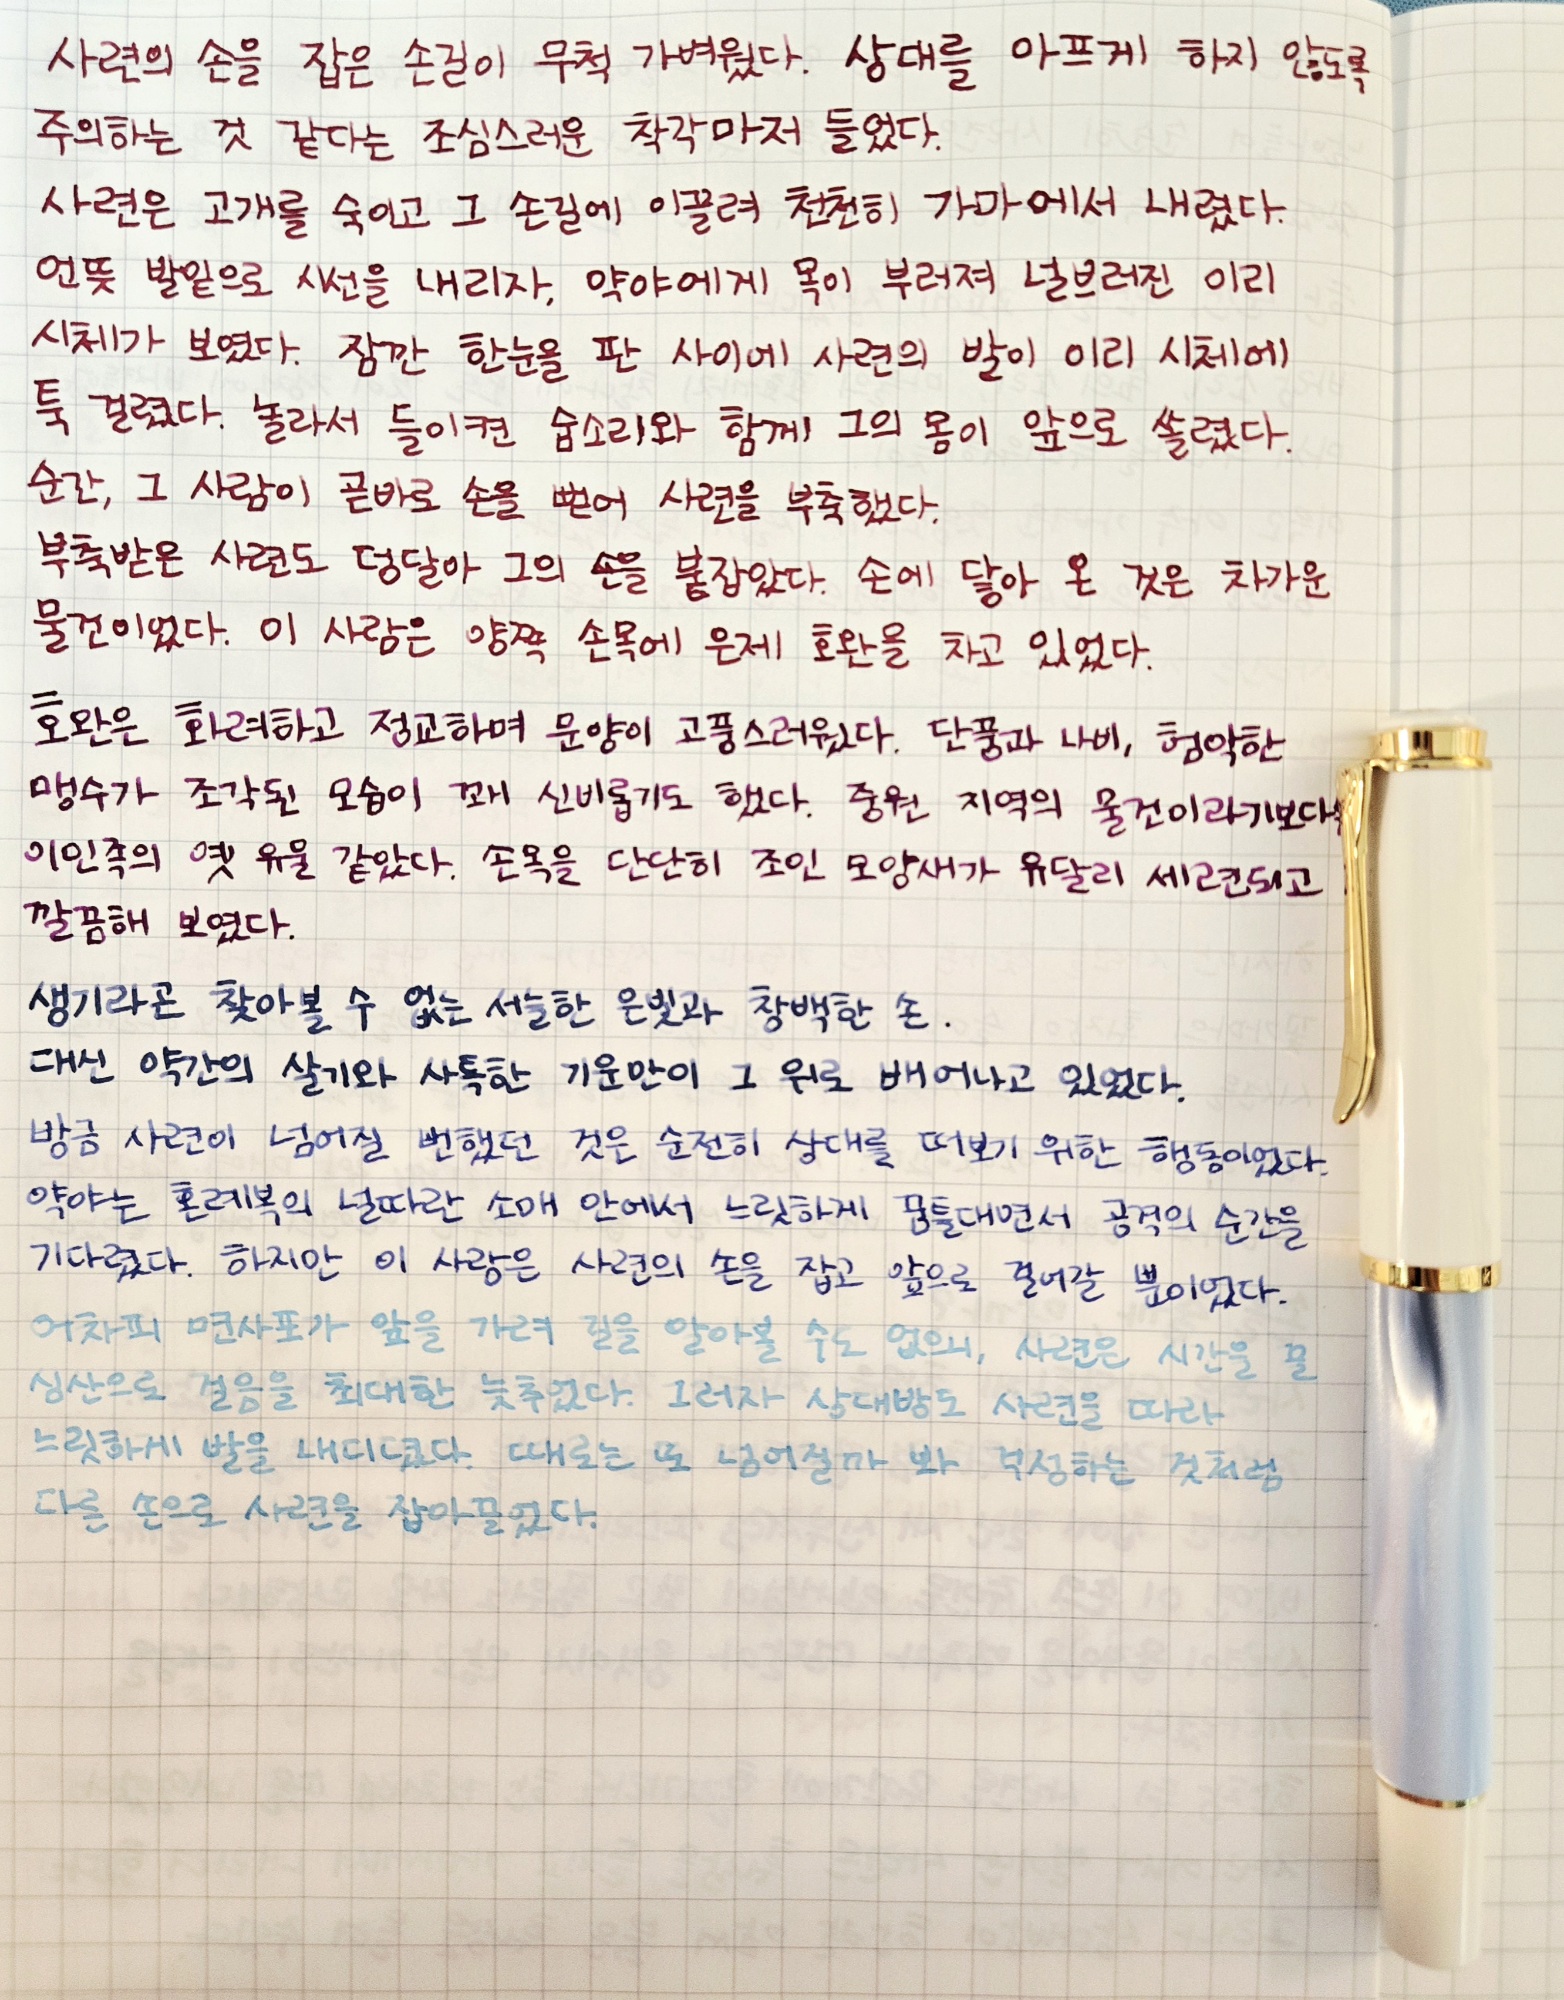 사련의 손을 잡은 손길이 무척 가벼웠다. 상대를 아프게 하지 않도록
주의하는 것 같다는 조심스러운 착각마저 들었다.
사련은 고개를 숙이고 그 손길에 이끌려 천천히 가마에서 내렸다.
언뜻 발밑으로 시선을 내리자, 약야에게 목이 부러져 널브러진 이리
시체가 보였다. 잠깐 한눈을 판 사이에 사련의 발이 이리 시체에
툭 걸렸다. 놀라서 들이켠 숨소리와 함께 그의 몸이 앞으로 쏠렸다.
순간, 그 사람이 곧바로 손을 뻗어 사련을 부축했다.
부축받은 사련도 덩달아 그의 손을 붙잡았다. 손에 닿아 온 것은 차가운
물건이었다. 이 사람은 양쪽 손목에 은제 호완을 차고 있었다.
호완은 화려하고 정교하며 문양이 고풍스러웠다. 단풍과 나비, 험악한
맹수가 조각된 모습이 꽤 신비롭기도 했다. 중원 지역의 물건이라기보다는
이민족의 옛 유물 같았다. 손목을 단단히 조인 모양새가 유달리 세련되고
깔끔해 보였다.
생기라곤 찾아볼 수 없는 서늘한 은빛과 창백한 손.
대신 약간의 살기와 사특한 기운만이 그 위로 배어나고 있었다.
방금 사련이 넘어질 뻔했던 것은 순전히 상대를 떠보기 위한 행동이었다.
약야는 혼례복의 널따란 소매 안에서 느릿하게 꿈틀대면서 공격의 순간을
기다렸다. 하지만 이 사람은 사련의 손을 잡고 앞으로 걸어갈 뿐이었다.
어차피 면사포가 앞을 가려 길을 알아볼 수도 없으니, 사련은 시간을 끌
심산으로 걸음을 최대한 늦추었다. 그러자 상대방도 사련을 따라
느릿하게 발을 내디뎠다. 때로는 또 넘어질까 봐 걱정하는 것처럼
다른 손으로 사련을 잡아끌었다.